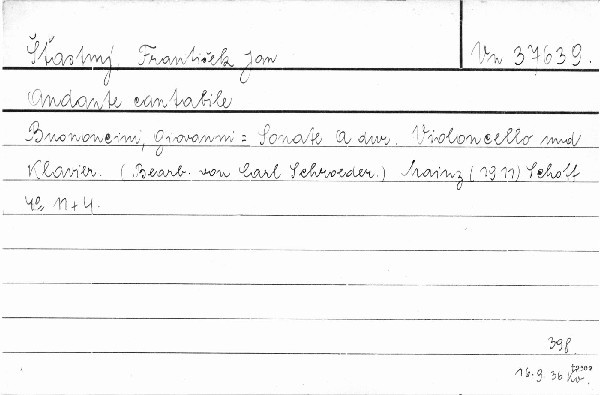 Šťastný, František Jan
Vn 37639.
Andante cantabile
Buononcini, Giovanni = Sonate A dur. Violoncello und
Klavier. (Bearb. von Carl Schroeder.) Mainz (1911) Schott
4° 11+4.
398.
18.9 36